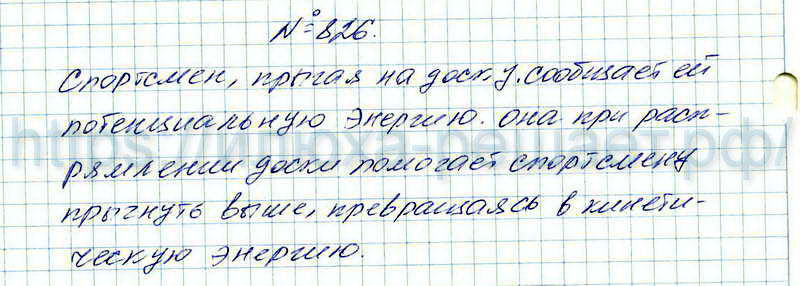 № 826.
Спортсмен, прыгая на доску. сообщает ей
потенциальную энергию. она при расп-
рямлении доски помогает спортсмену
прыгнуть выше, превращаясь в кинети-
ческую энергию.